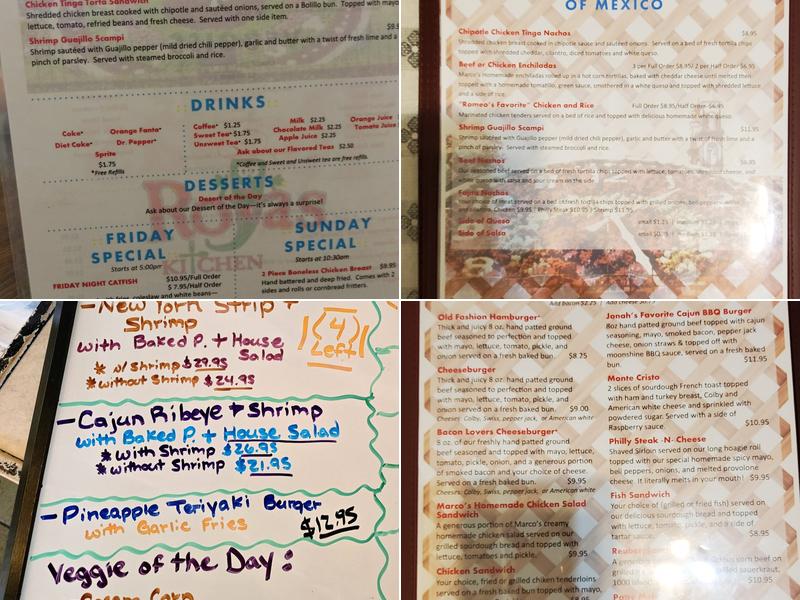 Chicken Tinga Torta Sandwich
Shredded chicken breast cooked with chipotle and sautéed onions, served on a Bolillo bun. Topped with mayo
lettuce, tomato, refried beans and fresh cheese. Served with one side item.
Shrimp Guajillo Scampi
Shrimp sautéed with Guajillo pepper (mild dried chili pepper), garlic and butter with a twist of fresh lime and a
pinch of parsley. Served with steamed broccoli and rice.
DRINKS
Coke* Orange Fanta*
Diet Coke* Dr. Pepper*
Sprite
$1.75
*Free Refills
Coffee* $1.25 Milk $2.25 Orange Juice
Sweet Tea* $1.75 Chocolate Milk $2.25 Tomato
Unsweet Tea* $1.75 Apple Juice $2.25
Ask about our Flavored Teas $2.50
*Coffee and Sweet and Unsweet tea are free refills.
DESSERTS
Dessert of the Day
Ask about our Dessert of the Day—it's always a surprise!
Rojas
KITCHEN
FRIDAY
SPECIAL
Starts at 5:00pm
FRIDAY NIGHT CATFISH $10.95/Full Order
$ 7.95/Half Order
coleslaw and white beans—
SUNDAY
SPECIAL
Starts at 10:30am
2 Piece Boneless Chicken Breast $9.95
Hand battered and deep fried. Comes with 2
sides and rolls or cornbread fritters.
OF MEXICO
Chipotle Chicken Tinga Nachos $8.95
Shredded chicken breast cooked in chipotle and sautéed onions. Served on a bed of fresh tortilla chips
topped with shredded cheddar, cilantro, diced tomatoes and white queso.
Beef or Chicken Enchiladas 3 per Full Order $8.95/ 2 per Half Order $6.95
Marco's Homemade enchiladas rolled up in a hot corn tortillas, baked with cheddar cheese until melted then
topped with a homemade tomatillo, green sauce, smothered in a white queso and topped with shredded lettuce
and a side of rice.
"Romeo's Favorite" Chicken and Rice Full Order $8.95/Half Order $6.95
Marinated chicken tenders served on a bed of rice and topped with delicious homemade white queso.
Shrimp Guajillo Scampi $11.95
Shrimp sautéed with Guajillo pepper (mild dried chili pepper), garlic and butter with a twist of fresh lime and a
pinch of parsley. Served with steamed broccoli and rice.
Beef Nachos $6.95
Our seasoned beef served on a bed of fresh tortilla chips topped with lettuce, tomatoes, shredded cheese, and
white queso with salsa and sour cream on the side.
Fajita Nachos
Your choice of meat served on a bed of fresh tortilla chips topped with grilled onions, bell peppers
Chicken $9.95 | Philly Steak $10.95 | Shrimp $11.95
Side of Queso small $1.25 | medium
Side of Salsa small $0.75 | medium
—New York Strip +
Shrimp
with Baked P. + House
Salad
* w/ Shrimp $29.95
* without Shrimp $24.95
4
Left
—Cajun Ribeye + Shrimp
with Baked P. + House Salad
* with Shrimp $26.95
* without Shrimp $21.95
—Pineapple Teriyaki Burger
with Garlic Fries $12.95
Veggie of the Day:
Cream Corn
Add bacon $2.25 | Add cheese $0.75
Old Fashion Hamburger*
Thick and juicy 8 oz. hand patted ground
beef seasoned to perfection and topped
with mayo, lettuce, tomato, pickle, and
onion served on a fresh baked bun. $8.75
Cheeseburger
Thick and juicy 8 oz. hand patted ground
beef seasoned to perfection and topped
with mayo, lettuce, tomato, pickle, and
onion served on a fresh baked bun. $9.00
Cheeses: Colby, Swiss, pepper jack, or American white
Bacon Lovers Cheeseburger*
8 oz. of our freshly hand patted ground
beef seasoned and topped with mayo, lettuce,
tomato, pickle, onion, and a generous portion
of smoked bacon and your choice of cheese.
Served on a fresh baked bun. $9.95
Cheeses: Colby, Swiss, pepper jack, or American white
Marco's Homemade Chicken Salad
Sandwich
A generous portion of Marco's creamy
homemade chicken salad served on our
grilled sourdough bread and topped with
lettuce, tomatoes and pickle. $9.95
Chicken Sandwich
Your choice, fried or grilled chicken tenderloins
served on a fresh baked bun topped with mayo,
Jonah's Favorite Cajun BBQ Burger
8oz hand patted ground beef topped with cajun
seasoning, mayo, smoked bacon, pepper jack
cheese, onion straws & topped off with
moonshine BBQ sauce, served on a fresh baked
bun. $11.95
Monte Cristo
2 slices of sourdough French toast topped
with ham and turkey breast, Colby and
American white cheese and sprinkled with
powdered sugar. Served with a side of
Raspberry sauce. $10.95
Philly Steak -N- Cheese
Shaved Sirloin served on our long hoagie roll
topped with our special homemade spicy mayo,
bell peppers, onions, and melted provolone
cheese. It literally melts in your mouth! $9.95
Fish Sandwich
Your choice of (grilled or fried fish) served on
our delicious sourdough bread and topped
with lettuce, tomato, pickle, and a side of
tartar sauce. $8.95
Reuben
A generous corn beef on
grilled sauerkraut,
1000 $10.95
Patty Melt